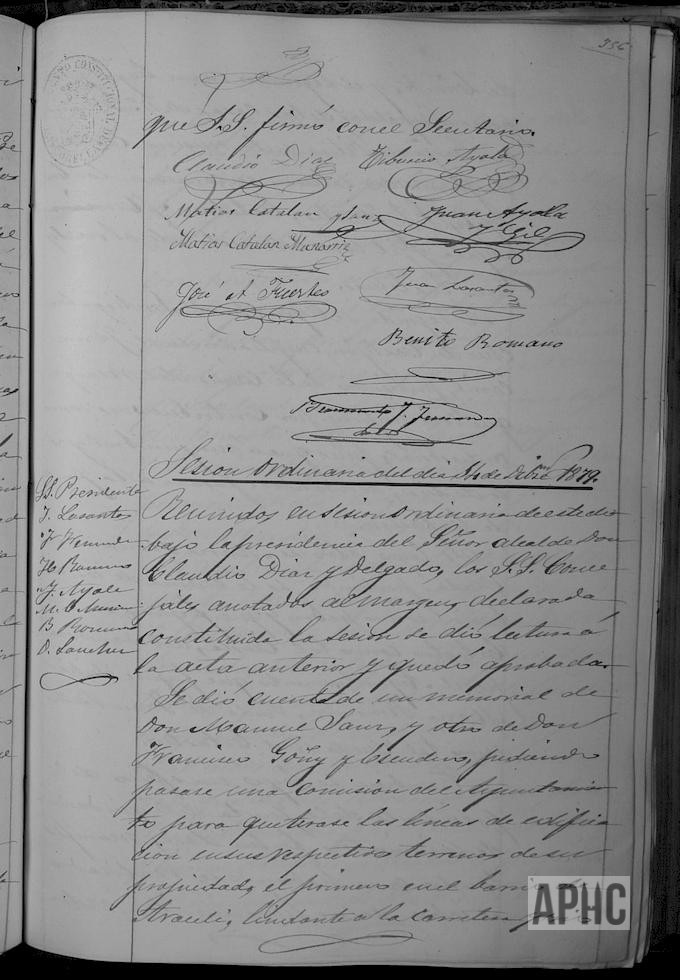 356
que S.S. firmó con el Secretario.
Claudio Diaz Tiburcio Ayala
Matias Catalan y Sanz Juan Ayala
y Gil
Matias Catalan Munarriz
José Mª Fuertes Juan Lasantas
Benito Romano
Sesion Ordinaria del dia de Dibre 1879.
SS. Presidente
J. Lasantas
F. Fernandez
H. Romano
J. Ayala
M. C. Munarriz
B. Romano
D. Sanchez
Reunidos en sesion Ordinaria de este dia
bajo la presidencia del Señor alcalde Don
Claudio Diaz y Delgado, los S.S. Conce
jales anotados al margen, declarada
constituida la sesion se dió lectura á
la acta anterior y quedó aprobada.
Se dió cuenta de un memorial de
Don Manuel Sanz, y otro de Don
Francisco Goñy y Escudero, pidiendo
pasase una Comision del Ayuntamien
to para que tirase las líneas de edifica
cion en sus respectivos terrenos de su
propiedad, el primero en el barrio de
Araceli, lindante a la carretera
APHC